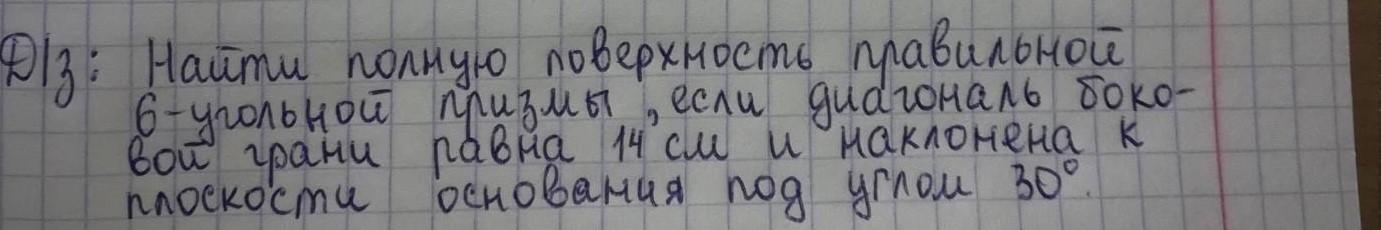 Д/з: Найти полную поверхность правильной
6-угольной призмы, если диагональ боко-
вой грани равна 14 см и наклонена к
плоскости основания под углом 30°.